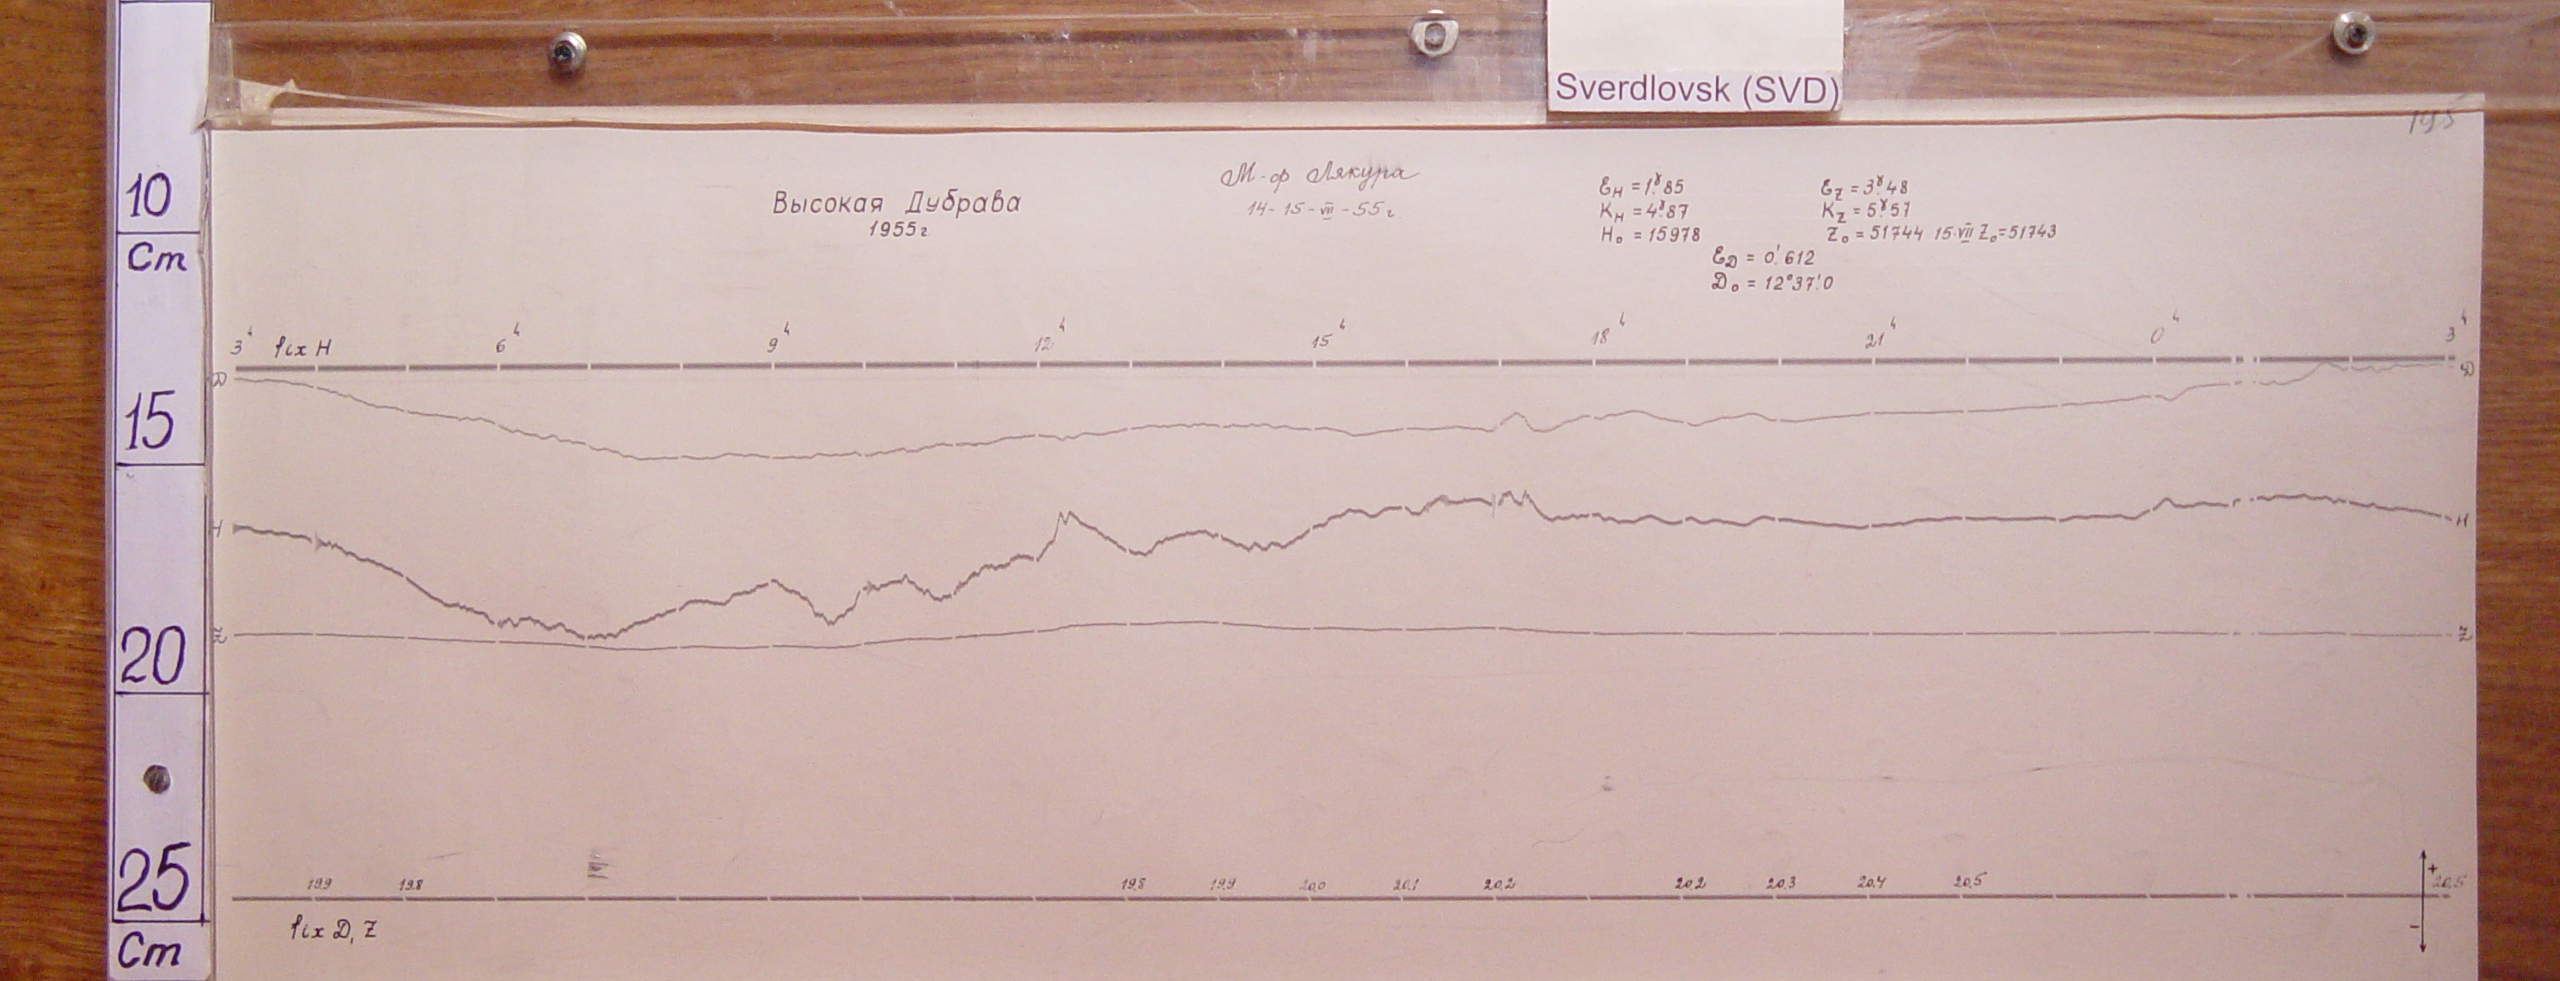 Sverdlovsk (SVD)
195
10
Cm
15
20
25
Cm
Высокая Дубрава
1955г.
М-ф Лякура
14-15-VII-55г.
ƐH = 1.ˠ85
KH = 4.ˠ87
H₀ = 15978
ƐZ = 3.ˠ48
KZ = 5.ˠ57
Z₀ = 51744 15.VII Z₀=51743
ƐD = 0.'612
D₀ = 12°37.'0
3ч fix H 6ч 9ч 12ч 15ч 18ч 21ч 0ч 3ч
D D
H H
Z Z
19.9 19.8 19.8 19.9 20.0 20.1 20.2 20.2 20.3 20.4 20.5 20.5
+
fix D, Z
-